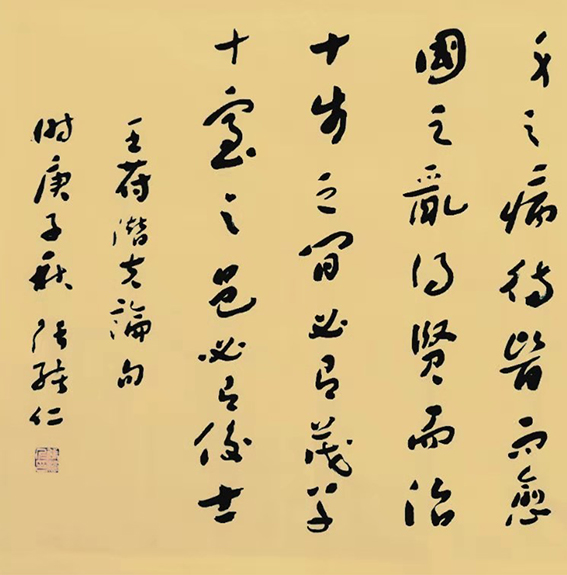 身之病待醫而愈
國之亂得賢而治
十步之間必有茂草
十室之邑必有俊士
王符潜夫論句
時庚子秋 張仁